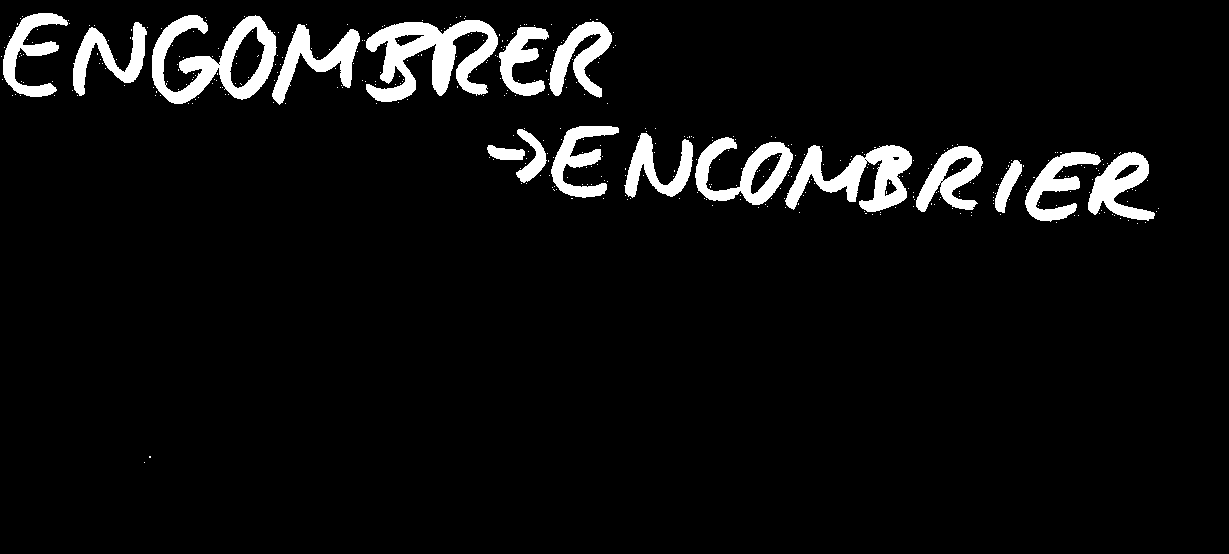 ENGOMBRER
→ENCOMBRIER